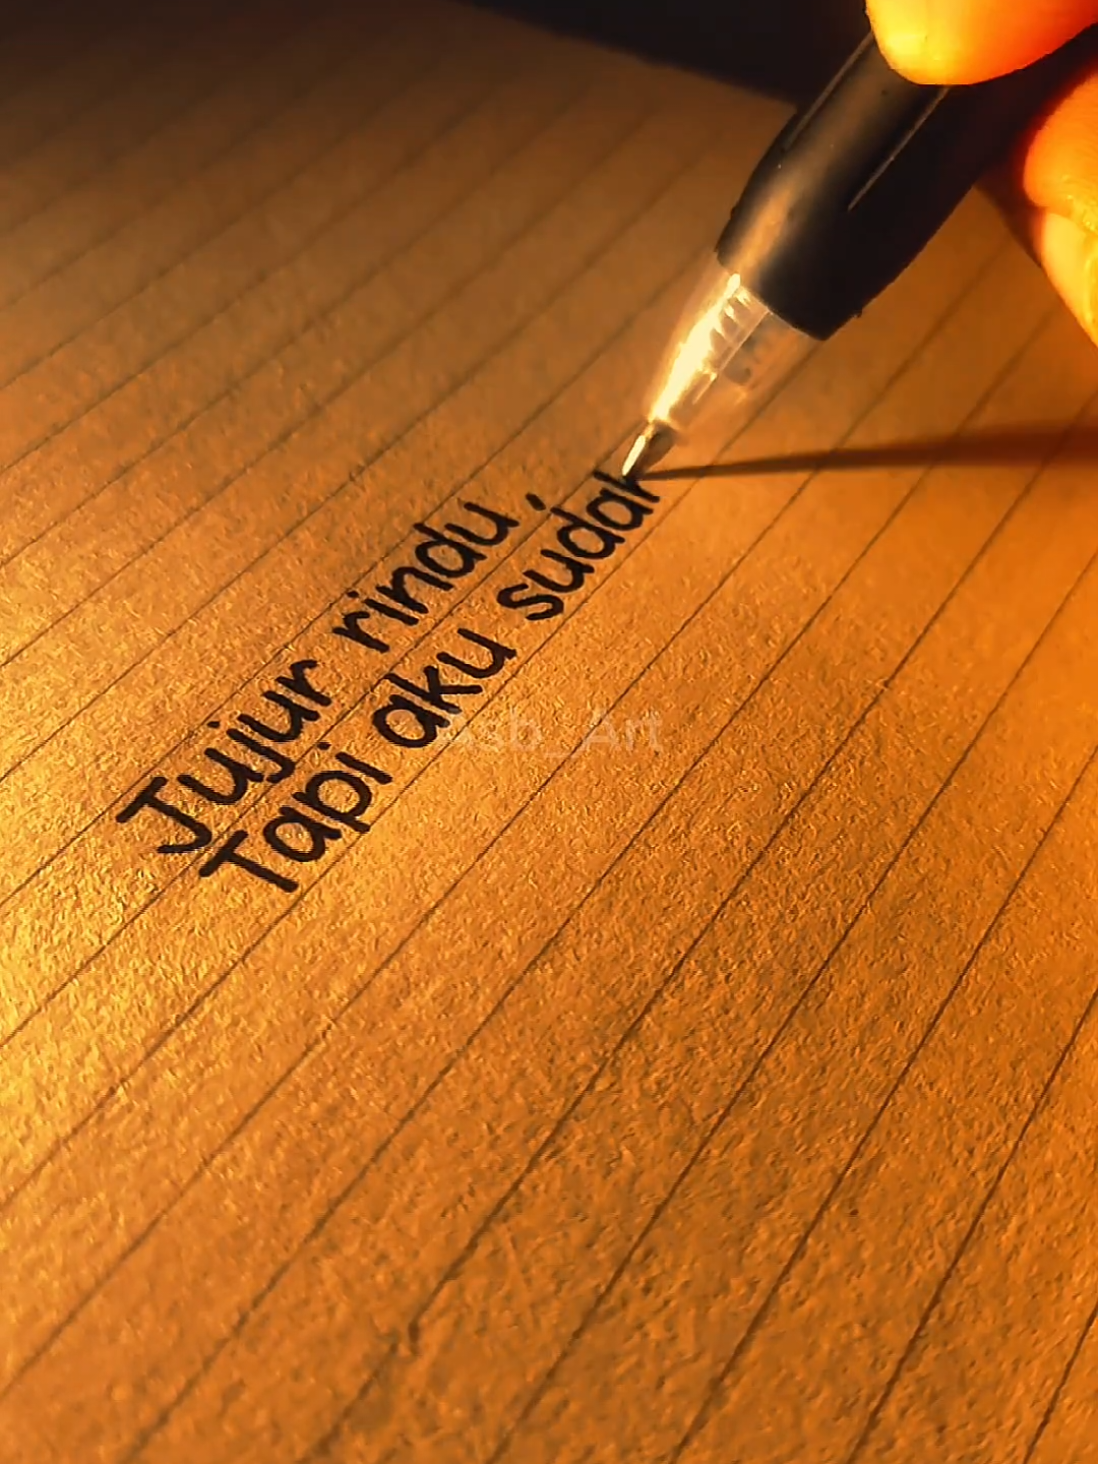 Jujur rindu,
Tapi aku sudah